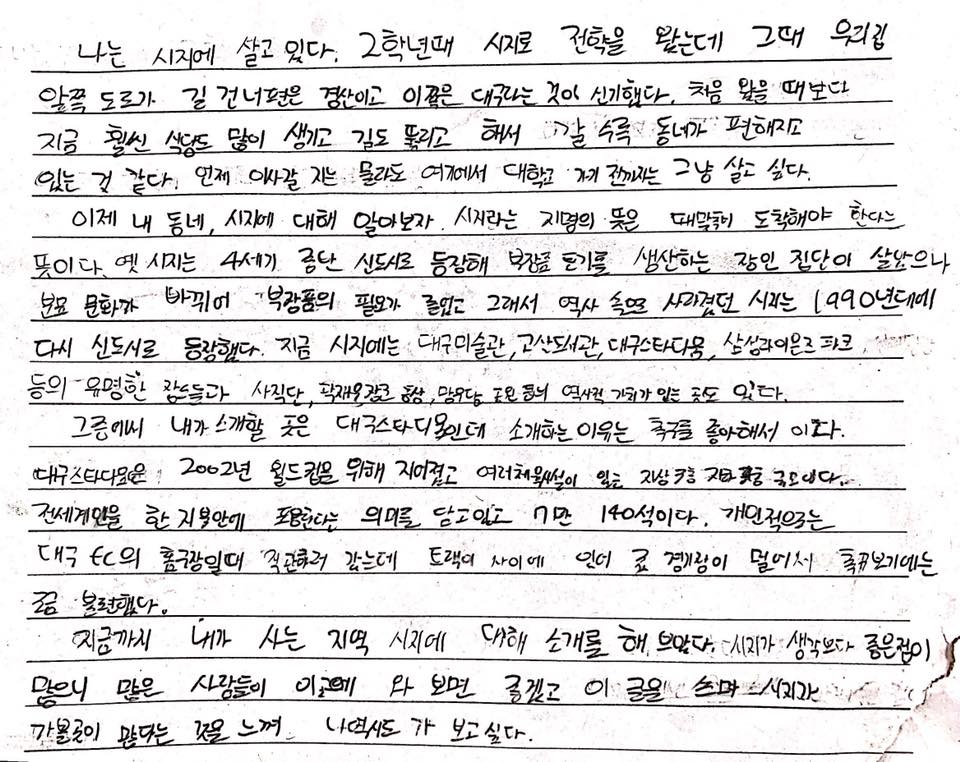 나는 시지에 살고 있다. 2학년때 시지로 전학을 왔는데 그때 우리집
앞쪽 도로가 길 건너편은 경산이고 이쪽은 대구라는 것이 신기했다. 처음 왔을 때보다
지금 훨씬 식당도 많이 생기고 길도 뚫리고 해서 갈 수록 동네가 편해지고
있는 것 같다. 언제 이사갈 지는 몰라도 여기에서 대학교 가기 전까지는 그냥 살고 싶다.
이제 내 동네, 시지에 대해 알아보자. 시지라는 지명의 뜻은 때맞춰 도착해야 한다는
뜻이다. 옛 시지는 4세기 중난 신도시로 등장해 부장품 토기를 생산하는 장인 집단이 살았으나
분묘 문화가 바뀌어 부장품의 필요가 줄었고 그래서 역사 속으로 사라졌던 시지는 1990년대에
다시 신도시로 등장했다. 지금 시지에는 대구미술관, 고산도서관, 대구스타디움, 삼성라이온즈 파크
등의 유명한 장소들과 사직단, 곽재우장군 동상, 망우당 공원 등의 역사적 가치가 있는 곳도 있다.
그중에서 내가 소개할 곳은 대구스타디움인데 소개하는 이유는 축구를 좋아해서 이다.
대구스타디움은 2002년 월드컵을 위해 지어졌고 여러체육시설이 있는 지상 3층 지하 층 이다.
전세계인을 한 지붕안에 포용한다는 의미를 담고있고 7만 140석이다. 개인적으로는
대구 FC의 홈구장일때 직관하러 갔는데 트랙이 사이에 있어 좀 경기장이 멀어서 축구보기에는
좀 불편했다.
지금까지 내가 사는 지역 시지에 대해 소개를 해 보았다. 시지가 생각보다 좋은점이
많으니 많은 사람들이 이곳에 와 보면 좋겠고 이 글을 쓰며 시지가
가볼곳이 많다는 것을 느껴 나역시도 가 보고싶다.